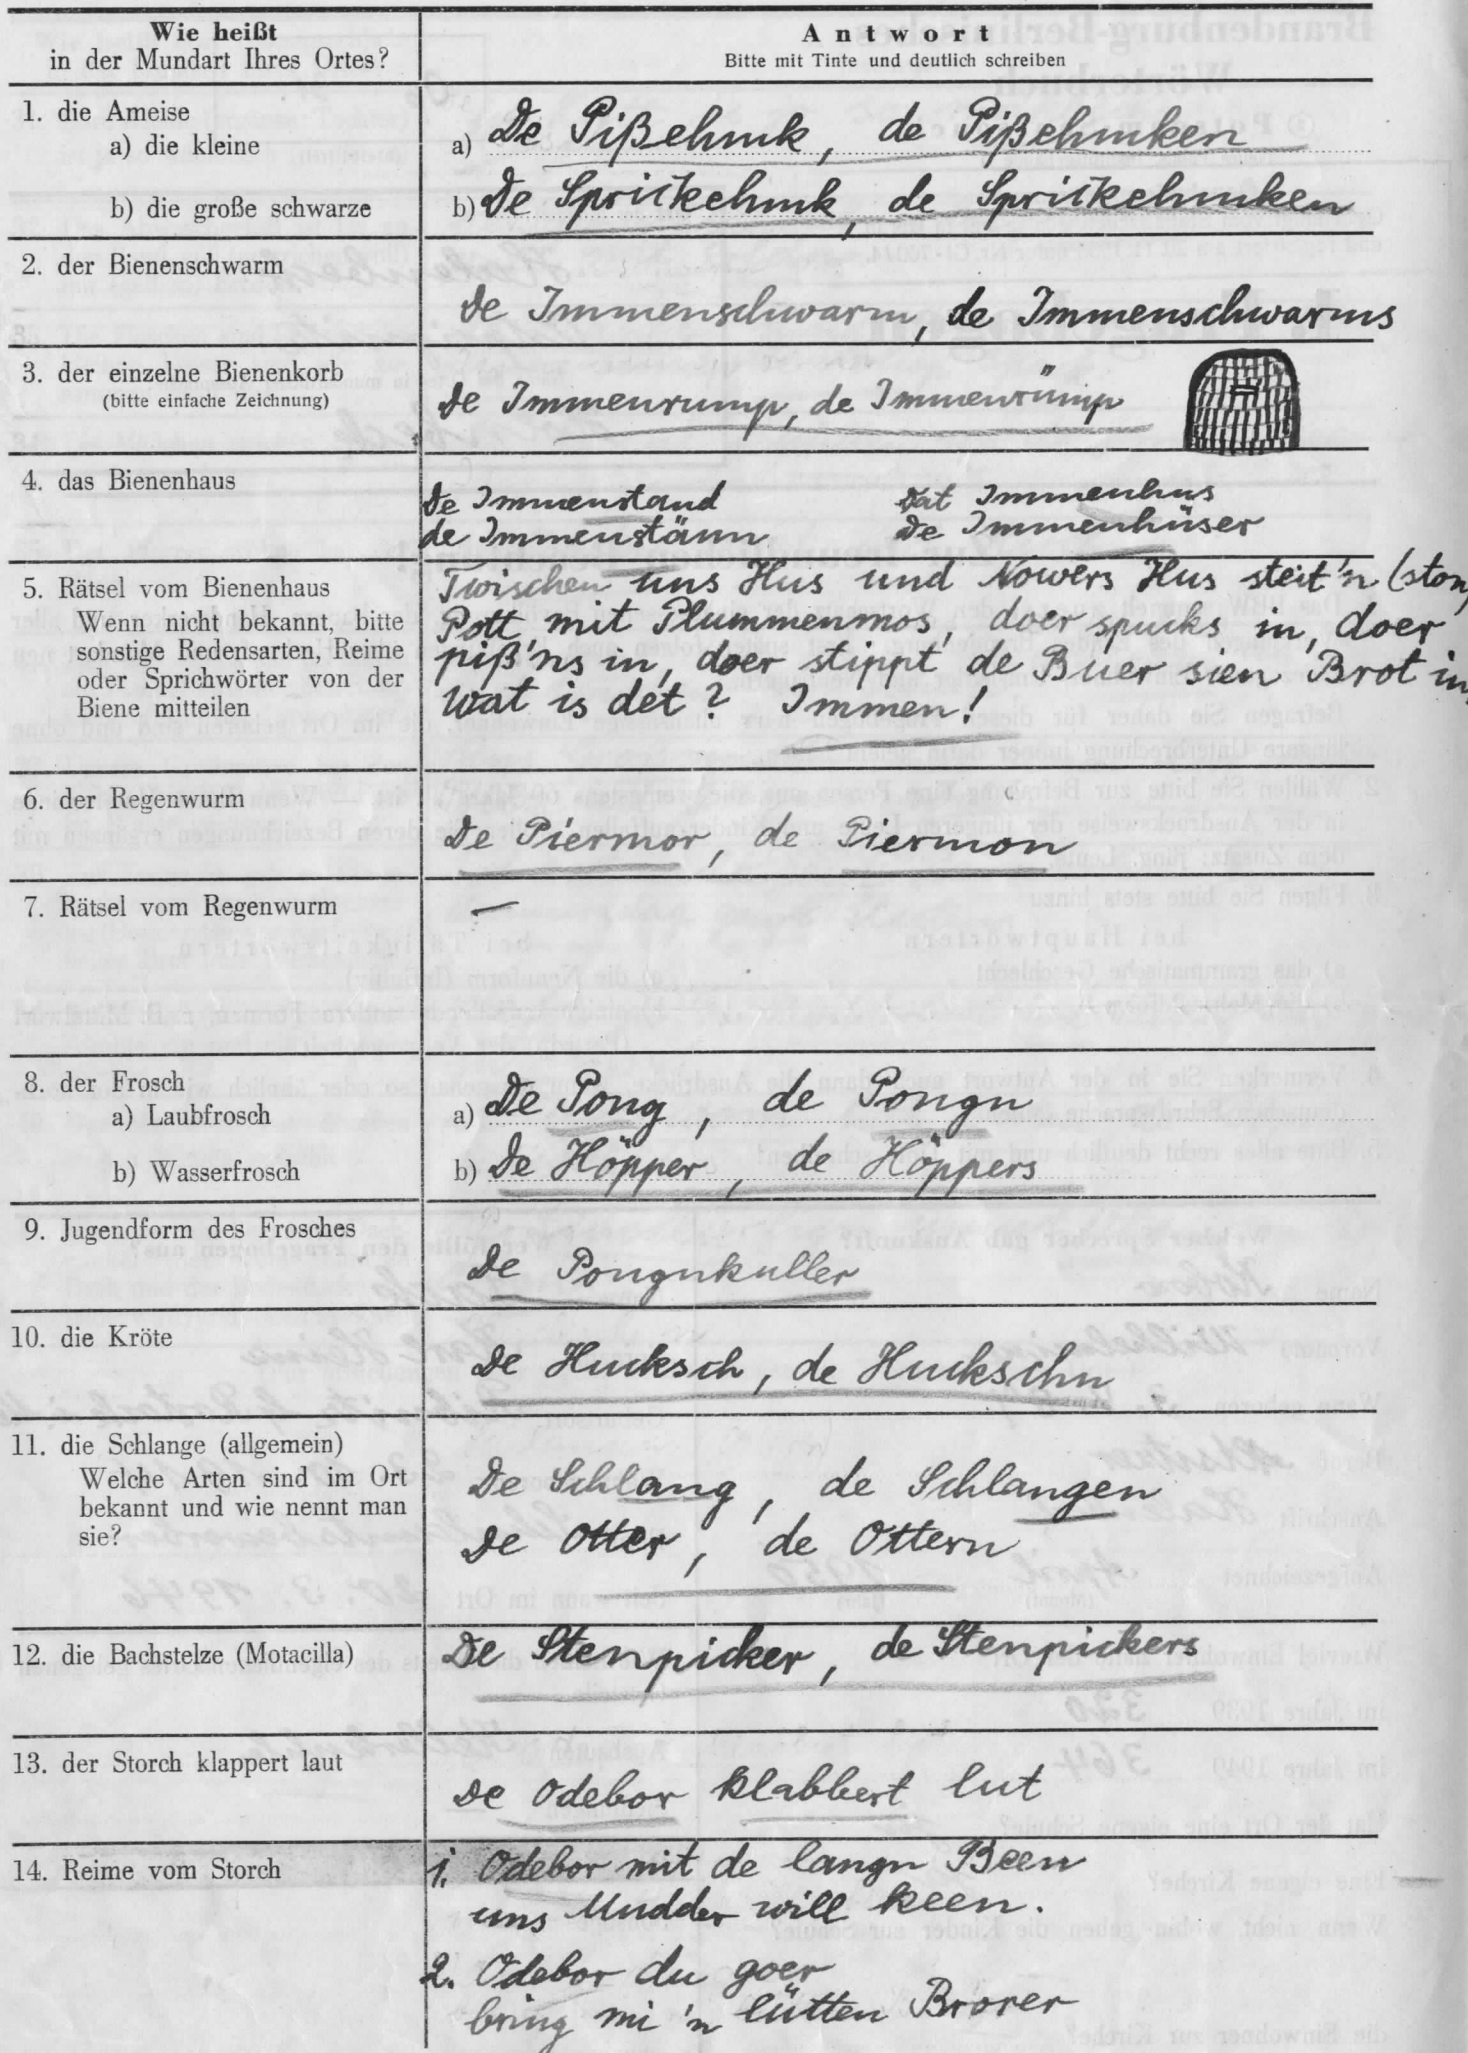 Wie heißt
in der Mundart Ihres Ortes?
Antwort
Bitte mit Tinte und deutlich schreiben
1. die Ameise
a) die kleine
a) De Pißehmk, de Pißehmken
b) die große schwarze
b) De Sprickehmk, de Sprickehmken
2. der Bienenschwarm
De Immenschwarm, de Immenschwarms
3. der einzelne Bienenkorb
(bitte einfache Zeichnung)
De Immenrump, de Immenrümp
4. das Bienenhaus
De Immenstand dat Immenhus
de Immenstänn de Immenhüser
5. Rätsel vom Bienenhaus
Wenn nicht bekannt, bitte
sonstige Redensarten, Reime
oder Sprichwörter von der
Biene mitteilen
Twischen uns Hus und Nowers Hus steit'n (ston)
Pott mit Plummenmos, doer spucks in, doer
piß'ns in, doer stippt de Buer sien Brot in,
Wat is det? Immen!
6. der Regenwurm
De Piermor, de Piermon
7. Rätsel vom Regenwurm
—
8. der Frosch
a) Laubfrosch
a) De Pong, de Pongn
b) Wasserfrosch
b) De Höpper, de Höppers
9. Jugendform des Frosches
De Pongnkuller
10. die Kröte
De Hucksch, de Huckschn
11. die Schlange (allgemein)
Welche Arten sind im Ort
bekannt und wie nennt man
sie?
De Schlang, de Schlangen
De Otter, de Ottern
12. die Bachstelze (Motacilla)
De Stenpicker, de Stenpickers
13. der Storch klappert laut
De Odebor klabbert lut
14. Reime vom Storch
1. Odebor mit de langn Been
uns Mudder will keen.
2. Odebor du goer
bring mi 'n lütten Brorer